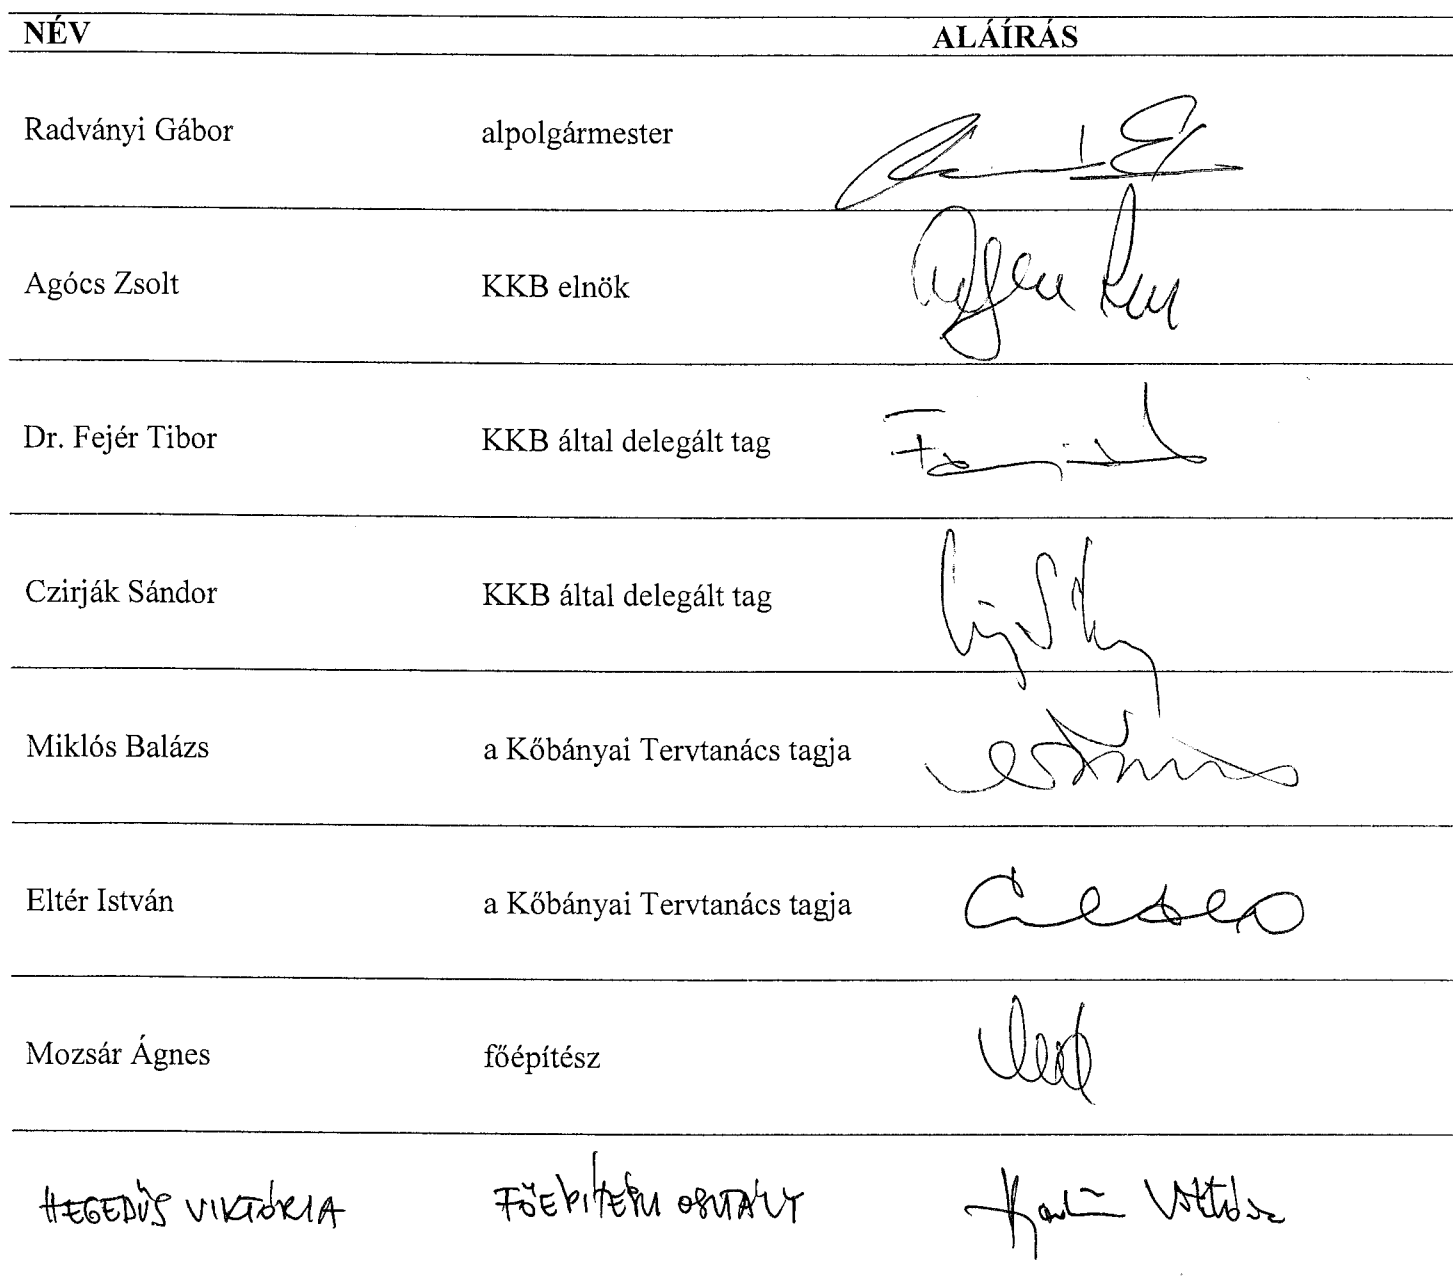 NÉV ALÁÍRÁS
Radványi Gábor alpolgármester
Agócs Zsolt KKB elnök
Dr. Fejér Tibor KKB által delegált tag
Czirják Sándor KKB által delegált tag
Miklós Balázs a Kőbányai Tervtanács tagja
Eltér István a Kőbányai Tervtanács tagja
Mozsár Ágnes főépítész
HEGEDŰS VIKTÓRIA FŐÉPÍTÉSZI OSZTÁLY